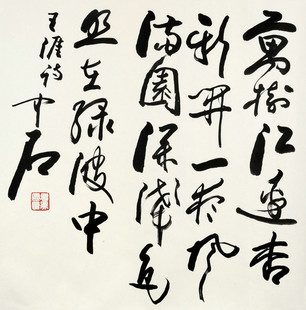 萬樹江邊杏
新開一夜風
滿園深淺色
照在綠波中
王涯詩 中石